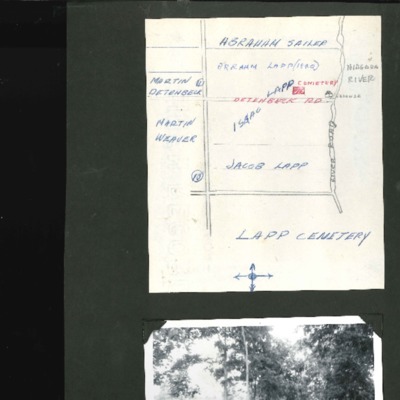 ABRAHAM SAILER
ABRAHAM LAPP (1800)
NIAGARA
RIVER
MARTIN
DETENBECK
LAPP CEMETERY
DETENBECK RD.
ISAAC
MARTIN
WEAVER
RIVER ROAD
JACOB LAPP
LAPP CEMETERY